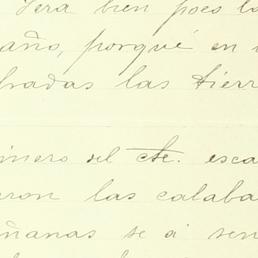 Será bien poco l
año, porqué en
bradas las tierr
inero del cte. esca
eron las calaba
ñanas se á sen